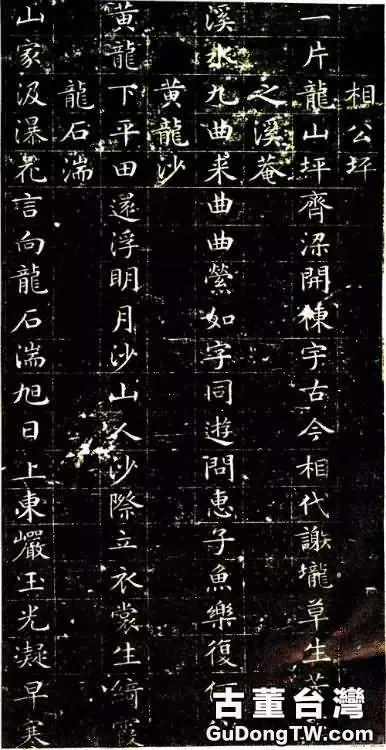 相公坪
一片龍山坪齊梁開棟宇古今相代謝壠草生
之溪菴
溪水九曲来曲曲縈如字同遊問惠子魚樂復
黄龍沙
黄龍下平田還浮明月沙山人沙際立衣裳生綺霞
龍石湍
山家汲瀑花言向龍石湍旭日上東巖玉光凝早寒
古董台灣
GuDongTW.com